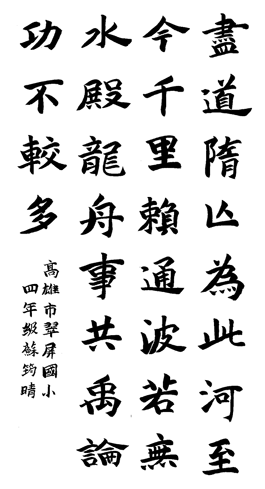 盡道隋亾為此河至
今千里賴通波若無
水殿龍舟事共禹論
功不較多
高雄市翠屏國小
四年級蘇筠晴